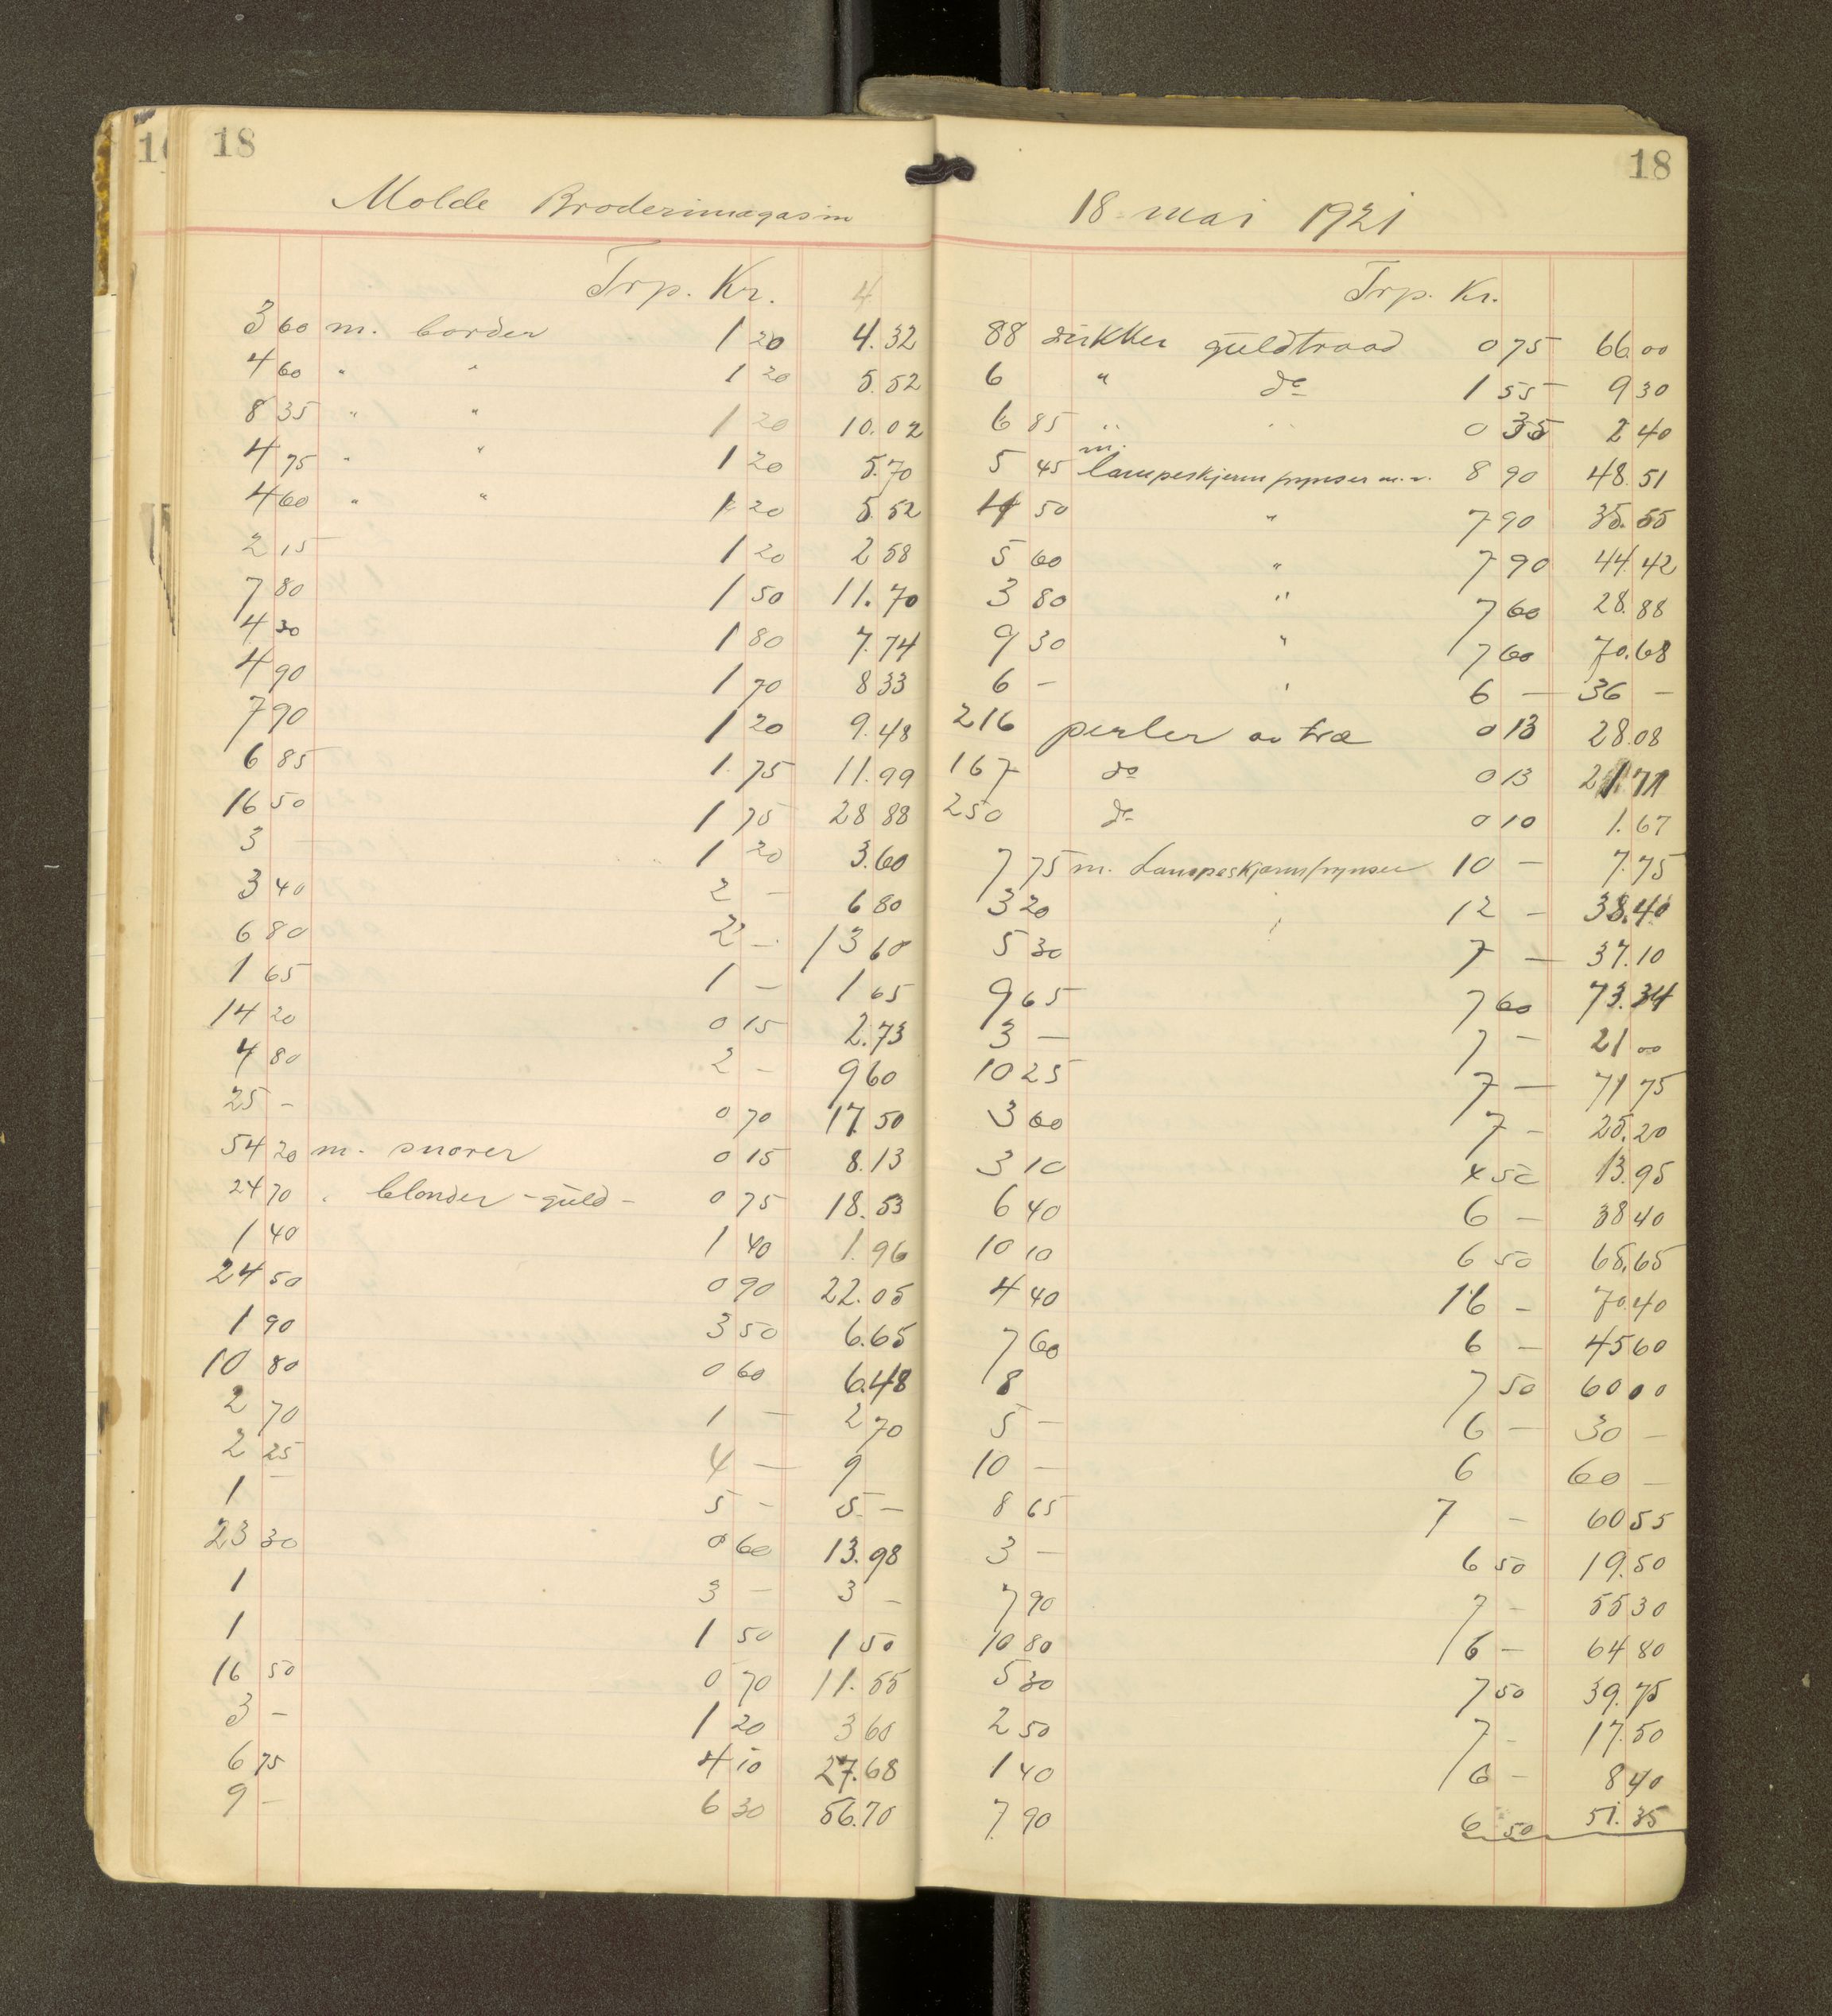 18
Molde Broderimagasin
Trp. Kr.
3 60 m. border 1 20 4.32
4 60 " " 1 20 5.52
8 35 " " 1 20 10.02
4 75 " " 1 20 5.70
4 60 " " 1 20 5.52
2 15 1 20 2 58
7 80 1 50 11.70
4 30 1 80 7.74
4 90 1 70 8 33
7 90 1 20 9.48
6 85 1.75 11.99
16 50 1 75 28 88
3 — 1 20 3.60
3 40 2 — 6 80
6 80 2 — 13 60
1 65 1 — 1 65
14 20 0 15 2.73
4 80 2 — 9 60
25 — 0 70 17.50
54 20 m. snorer 0 15 8.13
24 70 " blonder - guld - 0 75 18.53
1 40 1 40 1.96
24 50 0 90 22.05
1 90 3 50 6.65
10 80 0 60 6.48
2 70 1 — 2 70
2 25 4 — 9
1 — 5 — 5 —
23 30 0 60 13.98
1 3 — 3 —
1 1 50 1 50
16 50 0 70 11.55
3 — 1 20 3 60
6 75 4 10 27.68
9 — 6 30 56.70
18
18 mai 1921
Trp. Kr.
88 dukker guldtraad 0 75 66 00
6 " do 1 55 9 30
6 85 " " 0 35 2 40
5 45 m. lampeskjerm frynser m.v. 8 90 48.51
4 50 " 7 90 35.55
5 60 " 7 90 44.42
3 80 " 7 60 28.88
9 30 " 7 60 70.68
6 — " 6 — 36 —
216 perler av træ 0 13 28.08
167 do 0 13 21 71
250 do 0 10 1.67
7 75 m. Lampeskjermfrynser 10 — 7.75
3 20 " 12 — 38.40
5 30 7 — 37.10
9 65 7 60 73.34
3 — 7 — 21 00
10 25 7 — 71 75
3 60 7 — 25.20
3 10 4 50 13.95
6 40 6 — 38 40
10 10 6 50 65.65
4 40 16 — 70.40
7 60 6 — 45 60
8 7 50 60 00
5 — 6 — 30 —
10 — 6 60 —
8 65 7 — 60 55
3 — 6 50 19.50
7 90 7 — 55 30
10 80 6 — 64 80
5 30 7 50 39.75
2 50 7 — 17.50
1 40 6 — 8 40
7.90 6 50 51.35